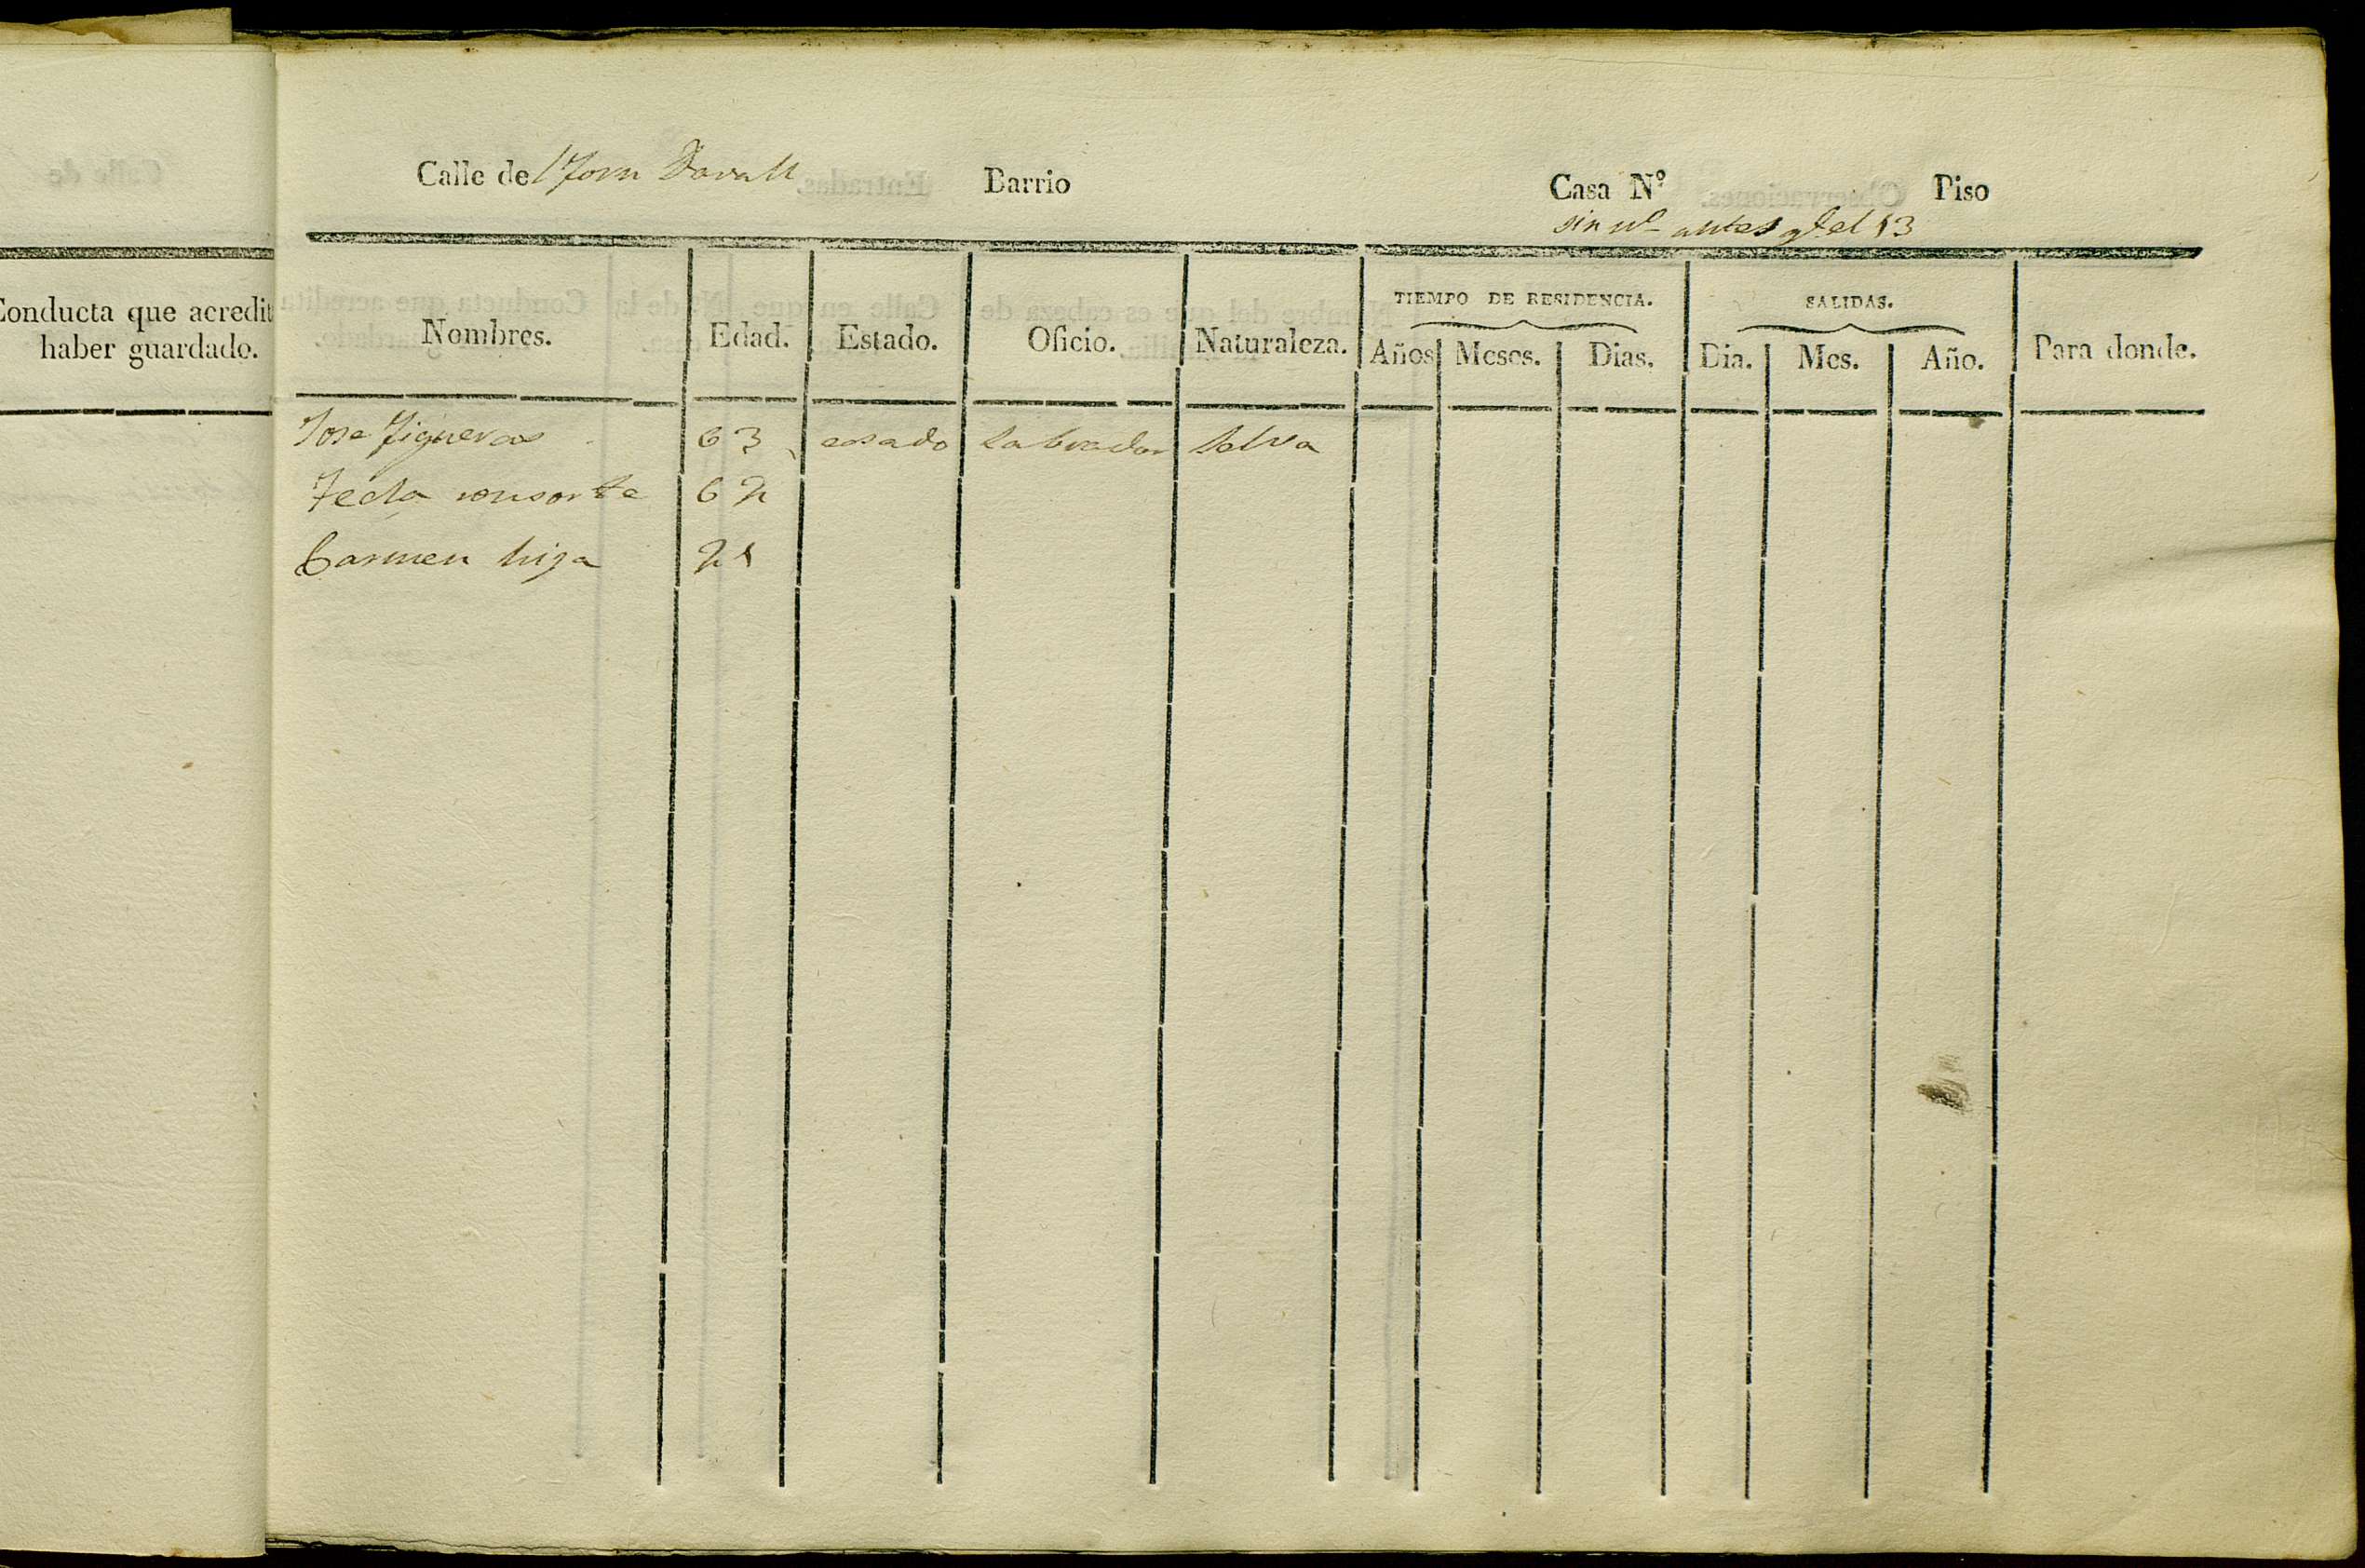 Conducta que acredit
haber guardado.
Calle de l Forn Davall Barrio Casa Nº Piso
sin nº antes qe. el 13
TIEMPO DE RESIDENCIA. SALIDAS.
Nombres. Edad. Estado. Oficio. Naturaleza. Años Meses. Dias. Dia. Mes. Año. Para donde.
Jose Figueras 63 casado Labrador Selva
Tecla consorte 62
Carmen hija